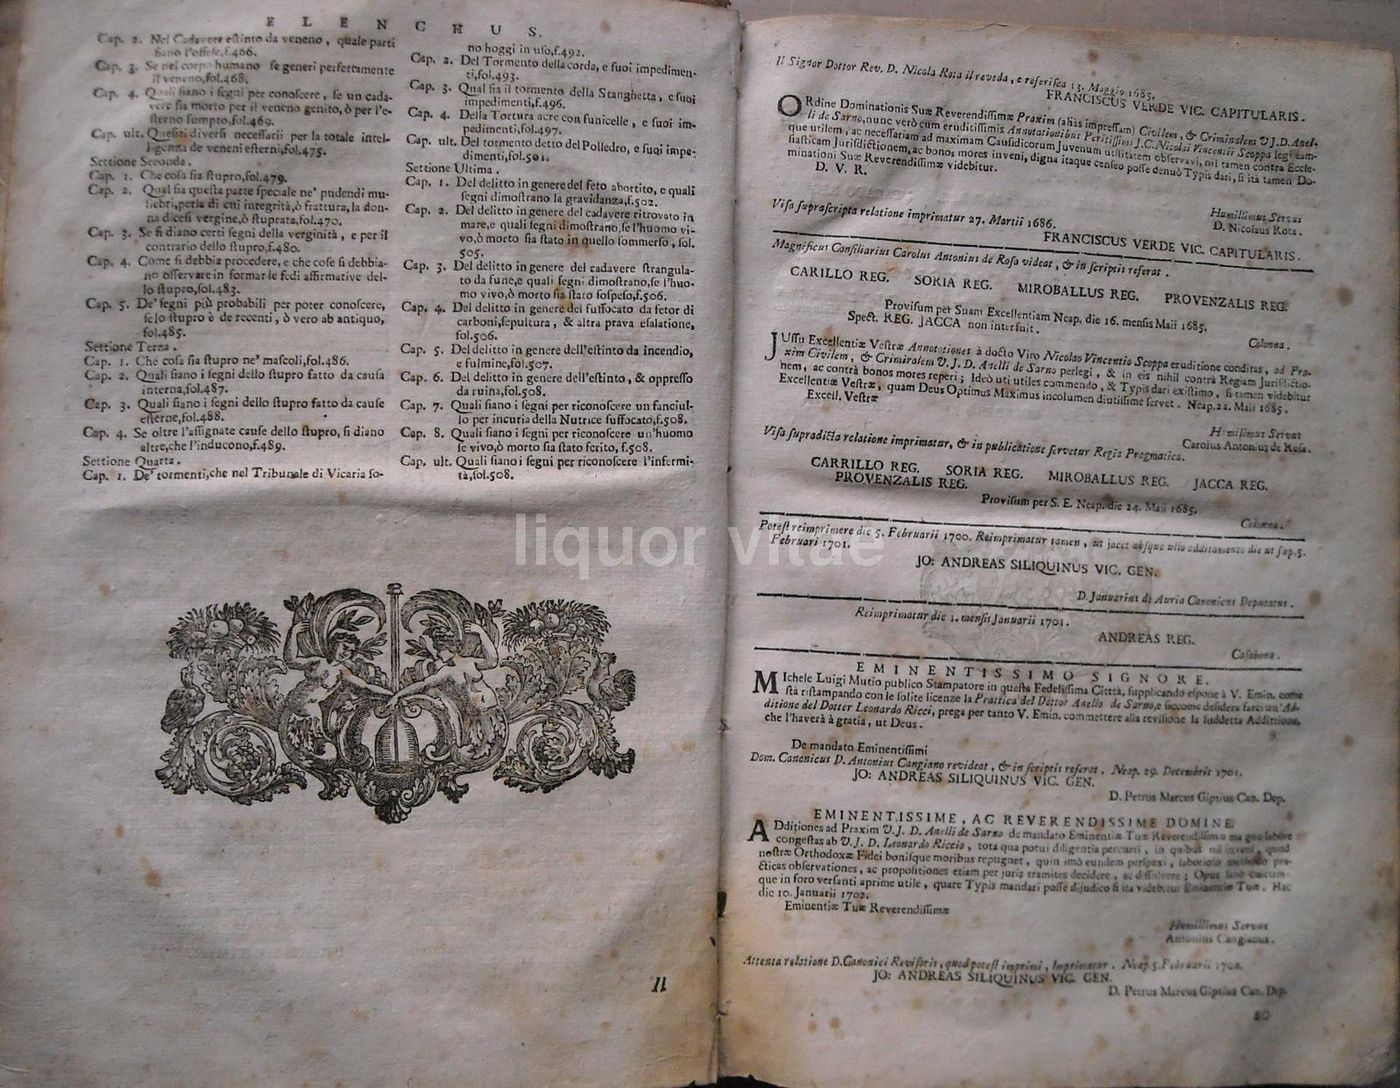 ELENCHUS.
Cap. 2. Nel Cadavere estinto da veneno, quale parti
siano l'offese, f.466.
Cap. 3. Se nel corpo humano se generi perfettamente
il veneno, fol.468.
Cap. 4. Quali siano i segni per conoscere, se un cada-
vere sia morto per il veneno genito, ò per l'e-
sterno sumpto, fol.469.
Cap. ult. Quesiti diversi necessarii per la totale intel-
ligenza de veneni esterni, fol.475.
Settione Seconda.
Cap. 1. Che cosa sia stupro, fol.479.
Cap. 2. Qual sia questa parte speciale ne' pudendi mu-
liebri, perla di cui integrità, ò frattura, la don-
na dicesi vergine, ò stuprata, fol.470.
Cap. 3. Se si diano certi segni della verginità, e per il
contrario dello stupro, f.480.
Cap. 4. Come si debbia procedere, e che cose si debbia-
no osservare in formar le fedi affirmative del-
lo stupro, f.483.
Cap. 5. De' segni più probabili per poter conoscere,
se lo stupro è de recenti, ò vero ab antiquo,
fol.485.
Settione Terza.
Cap. 1. Che cosa sia stupro ne' mascoli, fol.486.
Cap. 2. Quali siano i segni dello stupro fatto da causa
interna, fol.487.
Cap. 3. Quali siano i segni dello stupro fatto da cause
esterne, fol.488.
Cap. 4. Se oltre l'assignate cause dello stupro, si diano
altre, che l'inducono, f.489.
Settione Quarta.
Cap. 1. De' tormenti, che nel Tribunale di Vicaria so-
no hoggi in uso, f.492.
Cap. 2. Del Tormento della corda, e suoi impedimen-
ti, fol.493.
Cap. 3. Qual sia il tormento della Stanghetta, e suoi
impedimenti, f.496.
Cap. 4. Della Tortura acre con funicelle, e suoi im-
pedimenti, fol.497.
Cap. ult. Del tormento detto del Polledro, e suoi impe-
dimenti, fol.501.
Settione Ultima.
Cap. 1. Del delitto in genere del feto abortito, e quali
segni dimostrano la gravidanza, f.502.
Cap. 2. Del delitto in genere del cadavere ritrovato in
mare, e quali segni dimostrano, se l'huomo vi-
vo, ò morto sia stato in quello sommerso, fol.
505.
Cap. 3. Del delitto in genere del cadavere strangula-
to da fune, e quali segni dimostrano, se l'huo-
mo vivo, ò morto sia stato sospeso, f.506.
Cap. 4. Del delitto in genere del suffocato da fetor di
carboni, sepultura, & altra prava esalatione,
fol.506.
Cap. 5. Del delitto in genere dell'estinto da incendio,
e fulmine, fol.507.
Cap. 6. Del delitto in genere dell'estinto, & oppresso
da ruina, fol.508.
Cap. 7. Quali siano i segni per riconoscere un fanciul-
lo per incuria della Nutrice suffocato, f.508.
Cap. 8. Quali siano i segni per riconoscere un'huomo
se vivo, ò morto sia stato ferito, f.508.
Cap. ult. Quali siano i segni per riconoscere l'infermi-
tà, fol.508.
Il Signor Dottor Rev. D. Nicola Rota il reveda, e referisca 13. Maggio 1685.
FRANCISCUS VERDE VIC. CAPITULARIS.
ORdine Dominationis Suæ Reverendissimæ Praxim (aliàs impressam) Civilem, & Criminalem V.J.D. Anel-
li de Sarno, nunc verò cum eruditissimis Annotationibus Peritissimi J.C. Nicolai Vincentii Scoppa legi eam-
que utilem, ac necessariam ad maximam Causidicorum Juvenum utilitatem observavi, nil tamen contra Eccle-
siasticam Jurisdictionem, ac bonos mores inveni, digna itaque censeo posse denuò Typis dari, si ità tamen Do-
minationi Suæ Reverendissimæ videbitur.
D. V. R.
Humillimus Servus
D. Nicolaus Rota.
Visa suprascripta relatione imprimatur 27. Martii 1686.
FRANCISCUS VERDE VIC. CAPITULARIS.
Magnificus Consiliarius Carolus Antonius de Rosa videat, & in scriptis referat.
CARILLO REG. SORIA REG. MIROBALLUS REG. PROVENZALIS REG.
Provisum per Suam Excellentiam Neap. die 16. mensis Maii 1685.
Spect. REG. JACCA non interfuit.
Colonna.
JUssu Excellentiæ Vestræ Annotationes à docto Viro Nicolao Vincentio Scoppa eruditione conditas, ad Pra-
xim Civilem, & Criminalem V.J.D. Anelli de Sarno perlegi, & in eis nihil contrà Regiam Jurisdictio-
nem, ac contrà bonos mores reperi; Ideò uti utiles commendo, & Typis dari existimo, si tamen videbitur
Excellentiæ Vestræ, quam Deus Optimus Maximus incolumen diutissime servet. Neap. 22. Maii 1685.
Excell. Vestræ
Humilimus Servus
Carolus Antonius de Rosa.
Visa supradicta relatione imprimatur, & in publicatione servetur Regia Pragmatica.
CARRILLO REG. SORIA REG. MIROBALLUS REG. JACCA REG.
PROVENZALIS REG.
Provisum per S. E. Neap. die 24. Maii 1685.
Colonna.
Potest reimprimere die 5. Februarii 1700. Reimprimatur tamen, ut jacet absque ullo additamento die ut sup. 5.
Februari 1701.
JO: ANDREAS SILIQUINUS VIC. GEN.
D. Januarius de Auria Canonicus Deputatus.
Reimprimatur die 1. mensis Januarii 1701.
ANDREAS REG.
Casabona.
EMINENTISSIMO SIGNORE.
MIchele Luigi Mutio publico Stampatore in questa Fedelissima Città, supplicando espone à V. Emin. come
stà ristampando con le solite licenze la Prattica del Dottor Anello de Sarno, e siccome desidera farci un'Ad-
ditione del Dotter Leonardo Ricci, prega per tanto V. Emin. commettere alla revisione la suddetta Additione,
che l'haverà à gratia, ut Deus.
De mandato Eminentissimi
Dom. Canonicus D. Antonius Cangiano revideat, & in scriptis referat. Neap. 29. Decembris 1701.
JO: ANDREAS SILIQUINUS VIC. GEN.
D. Petrus Marcus Giptius Can. Dep.
EMINENTISSIME, AC REVERENDISSIME DOMINE
ADditiones ad Praxim V.J.D. Anelli de Sarno de mandato Eminentiæ Tuæ Reverendissimæ magno labore
congestas ab V.J.D. Leonardo Riccio, tota qua potui diligentia percurri, in quibus nil inveni, quod
nostræ Orthodoxæ Fidei bonisque moribus repugnet, quin imò eundem perspexi, laborioso methodo pra-
cticas observationes, ac propositiones etiam per juris tramites decidere, ac dissolvere; Opus sanè cuicum-
que in foro versanti aprime utile, quare Typis mandari posse dijudico si ita videbitur Eminentiæ Tuæ. Hac
die 10. Januarii 1702.
Eminentiæ Tuæ Reverendissimæ
Humillimus Servus
Antonius Cangianus.
Attenta relatione D. Canonici Revisoris, quod potest imprimi, Imprimatur. Neap. 5. Februarii 1702.
JO: ANDREAS SILIQUINUS VIC. GEN.
D. Petrus Marcus Giptius Can. Dep.
liquor vitae